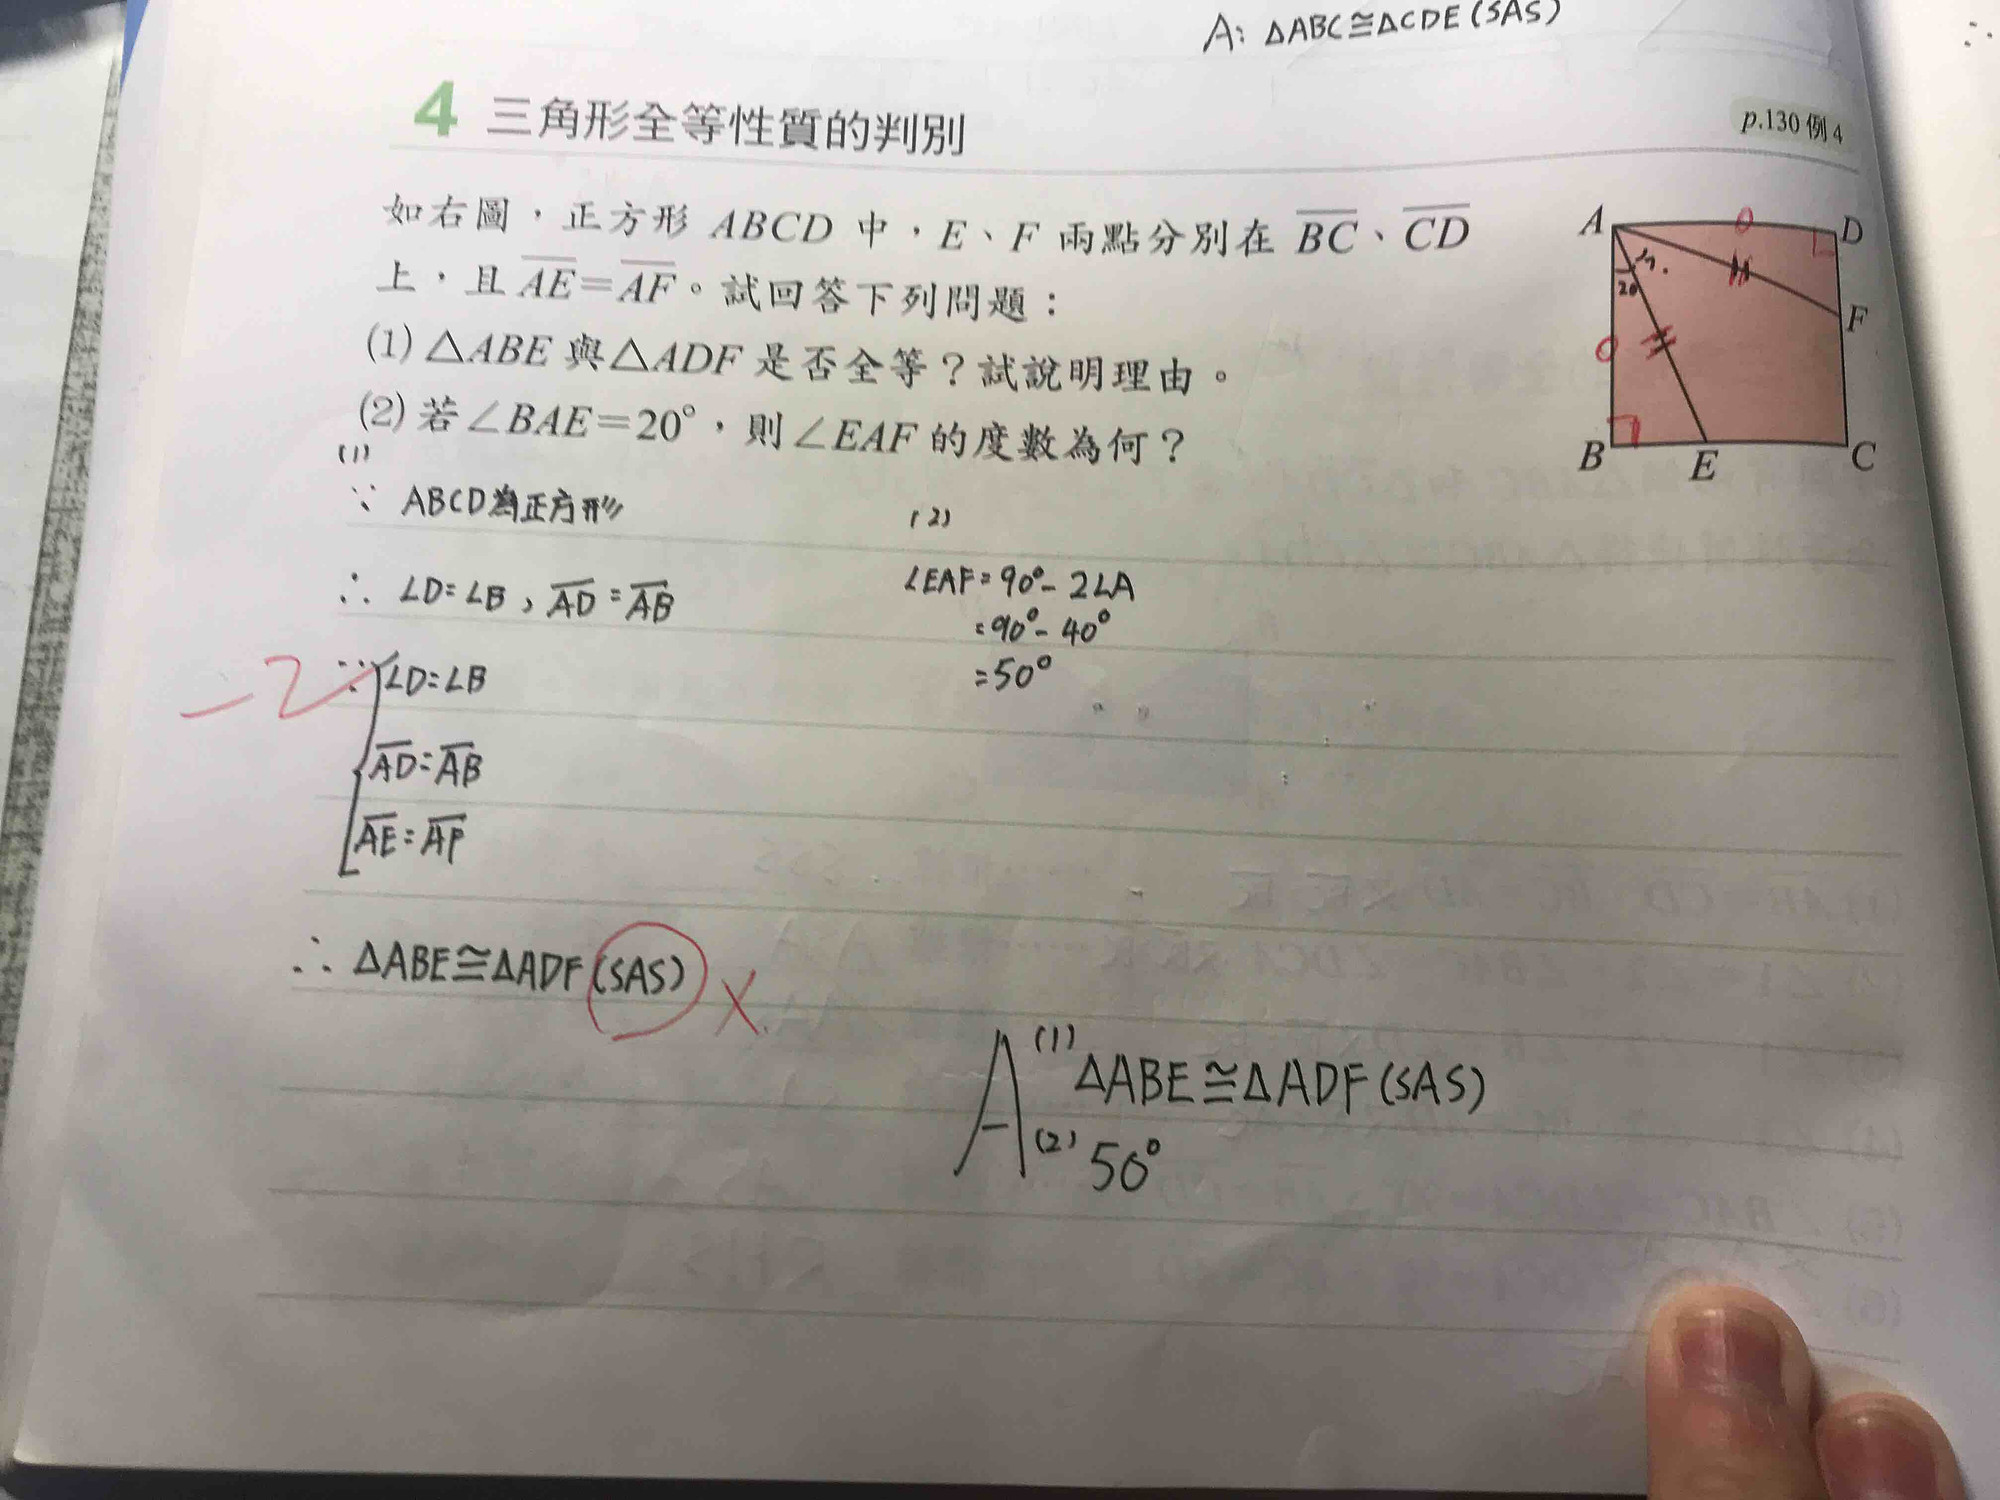 A: △ABC≅△CDE(SAS)
4 三角形全等性質的判別
p.130 例 4
如右圖，正方形 ABCD 中，E、F 兩點分別在 BC、CD
上，且 AE=AF。試回答下列問題：
(1) △ABE 與 △ADF 是否全等？試說明理由。
(2) 若 ∠BAE=20°，則 ∠EAF 的度數為何？
A
D
F
20
B
E
C
(1)
∵ ABCD為正方形
∴ ∠D=∠B, AD=AB
-2
∵ ∠D=∠B
AD=AB
AE=AF
∴ △ABE≅△ADF(SAS) X
(2)
∠EAF=90°-2∠A
=90°-40°
=50°
A (1) △ABE≅△ADF(SAS)
(2) 50°